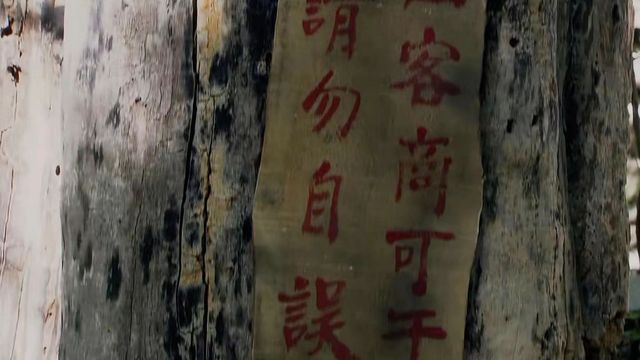 客商可于
請勿自誤